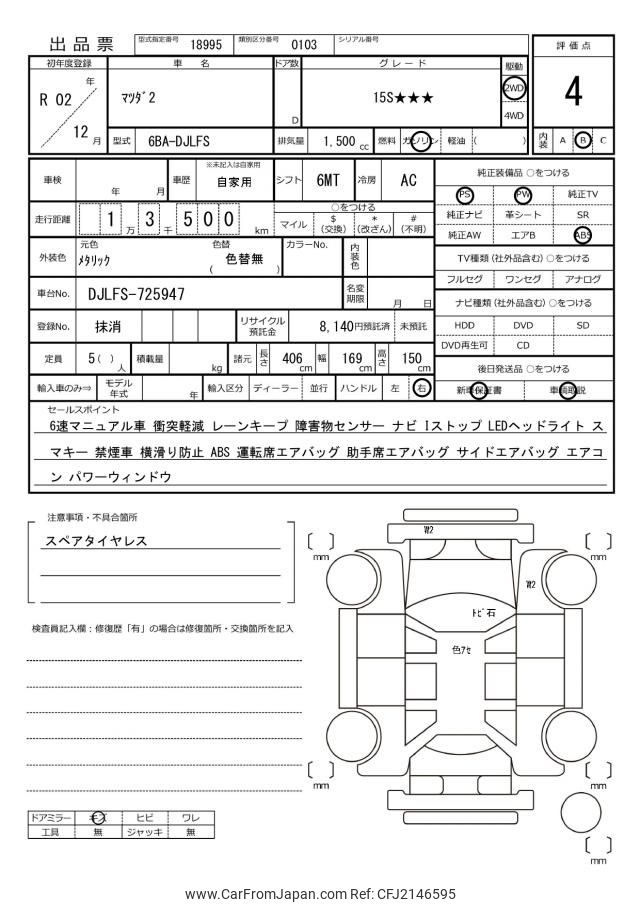 出品票
型式指定番号 18995 類別区分番号 0103 シリアル番号
評価点
4
内装 A B C
初年度登録 車名 ドア数 グレード 駆動
R 02 年 12 月
ﾏﾂﾀﾞ2
D
15S★★★
2WD
4WD
型式 6BA-DJLFS 排気量 1,500 cc 燃料 ガソリン 軽油 ( )
車検 年 月 車歴 ※未記入は自家用 自家用 シフト 6MT 冷房 AC
走行距離 1 3 5 0 0 万 千 km
○をつける
マイル $ (交換) * (改ざん) # (不明)
外装色 元色 ﾒﾀﾘｯｸ 色替 ( 色替無 ) カラーNo. 内装色
車台No. DJLFS-725947 名変期限 月 日
登録No. 抹消 リサイクル預託金 8,140円預託済 未預託
定員 5( ) 人 積載量 kg 諸元 長さ 406 cm 幅 169 cm 高さ 150 cm
輸入車のみ⇒ モデル年式 年 輸入区分 ディーラー 並行 ハンドル 左 右
純正装備品 ○をつける
PS PW 純正TV
純正ナビ 革シート SR
純正AW エアB ABS
TV種類(社外品含む) ○をつける
フルセグ ワンセグ アナログ
ナビ種類(社外品含む) ○をつける
HDD DVD SD
DVD再生可 CD
後日発送品 ○をつける
新車保証書 車輌取説
セールスポイント
6速マニュアル車 衝突軽減 レーンキープ 障害物センサー ナビ Iストップ LEDヘッドライト ス
マキー 禁煙車 横滑り防止 ABS 運転席エアバッグ 助手席エアバッグ サイドエアバッグ エアコ
ン パワーウィンドウ
注意事項・不具合箇所
スペアタイヤレス
検査員記入欄：修復歴「有」の場合は修復箇所・交換箇所を記入
ドアミラー キズ ヒビ ワレ
工具 無 ジャッキ 無
W2
W2
ﾄﾋﾞ石
色ｱｾ
mm
mm
mm
mm
mm
www.CarFromJapan.com Ref: CFJ2146595